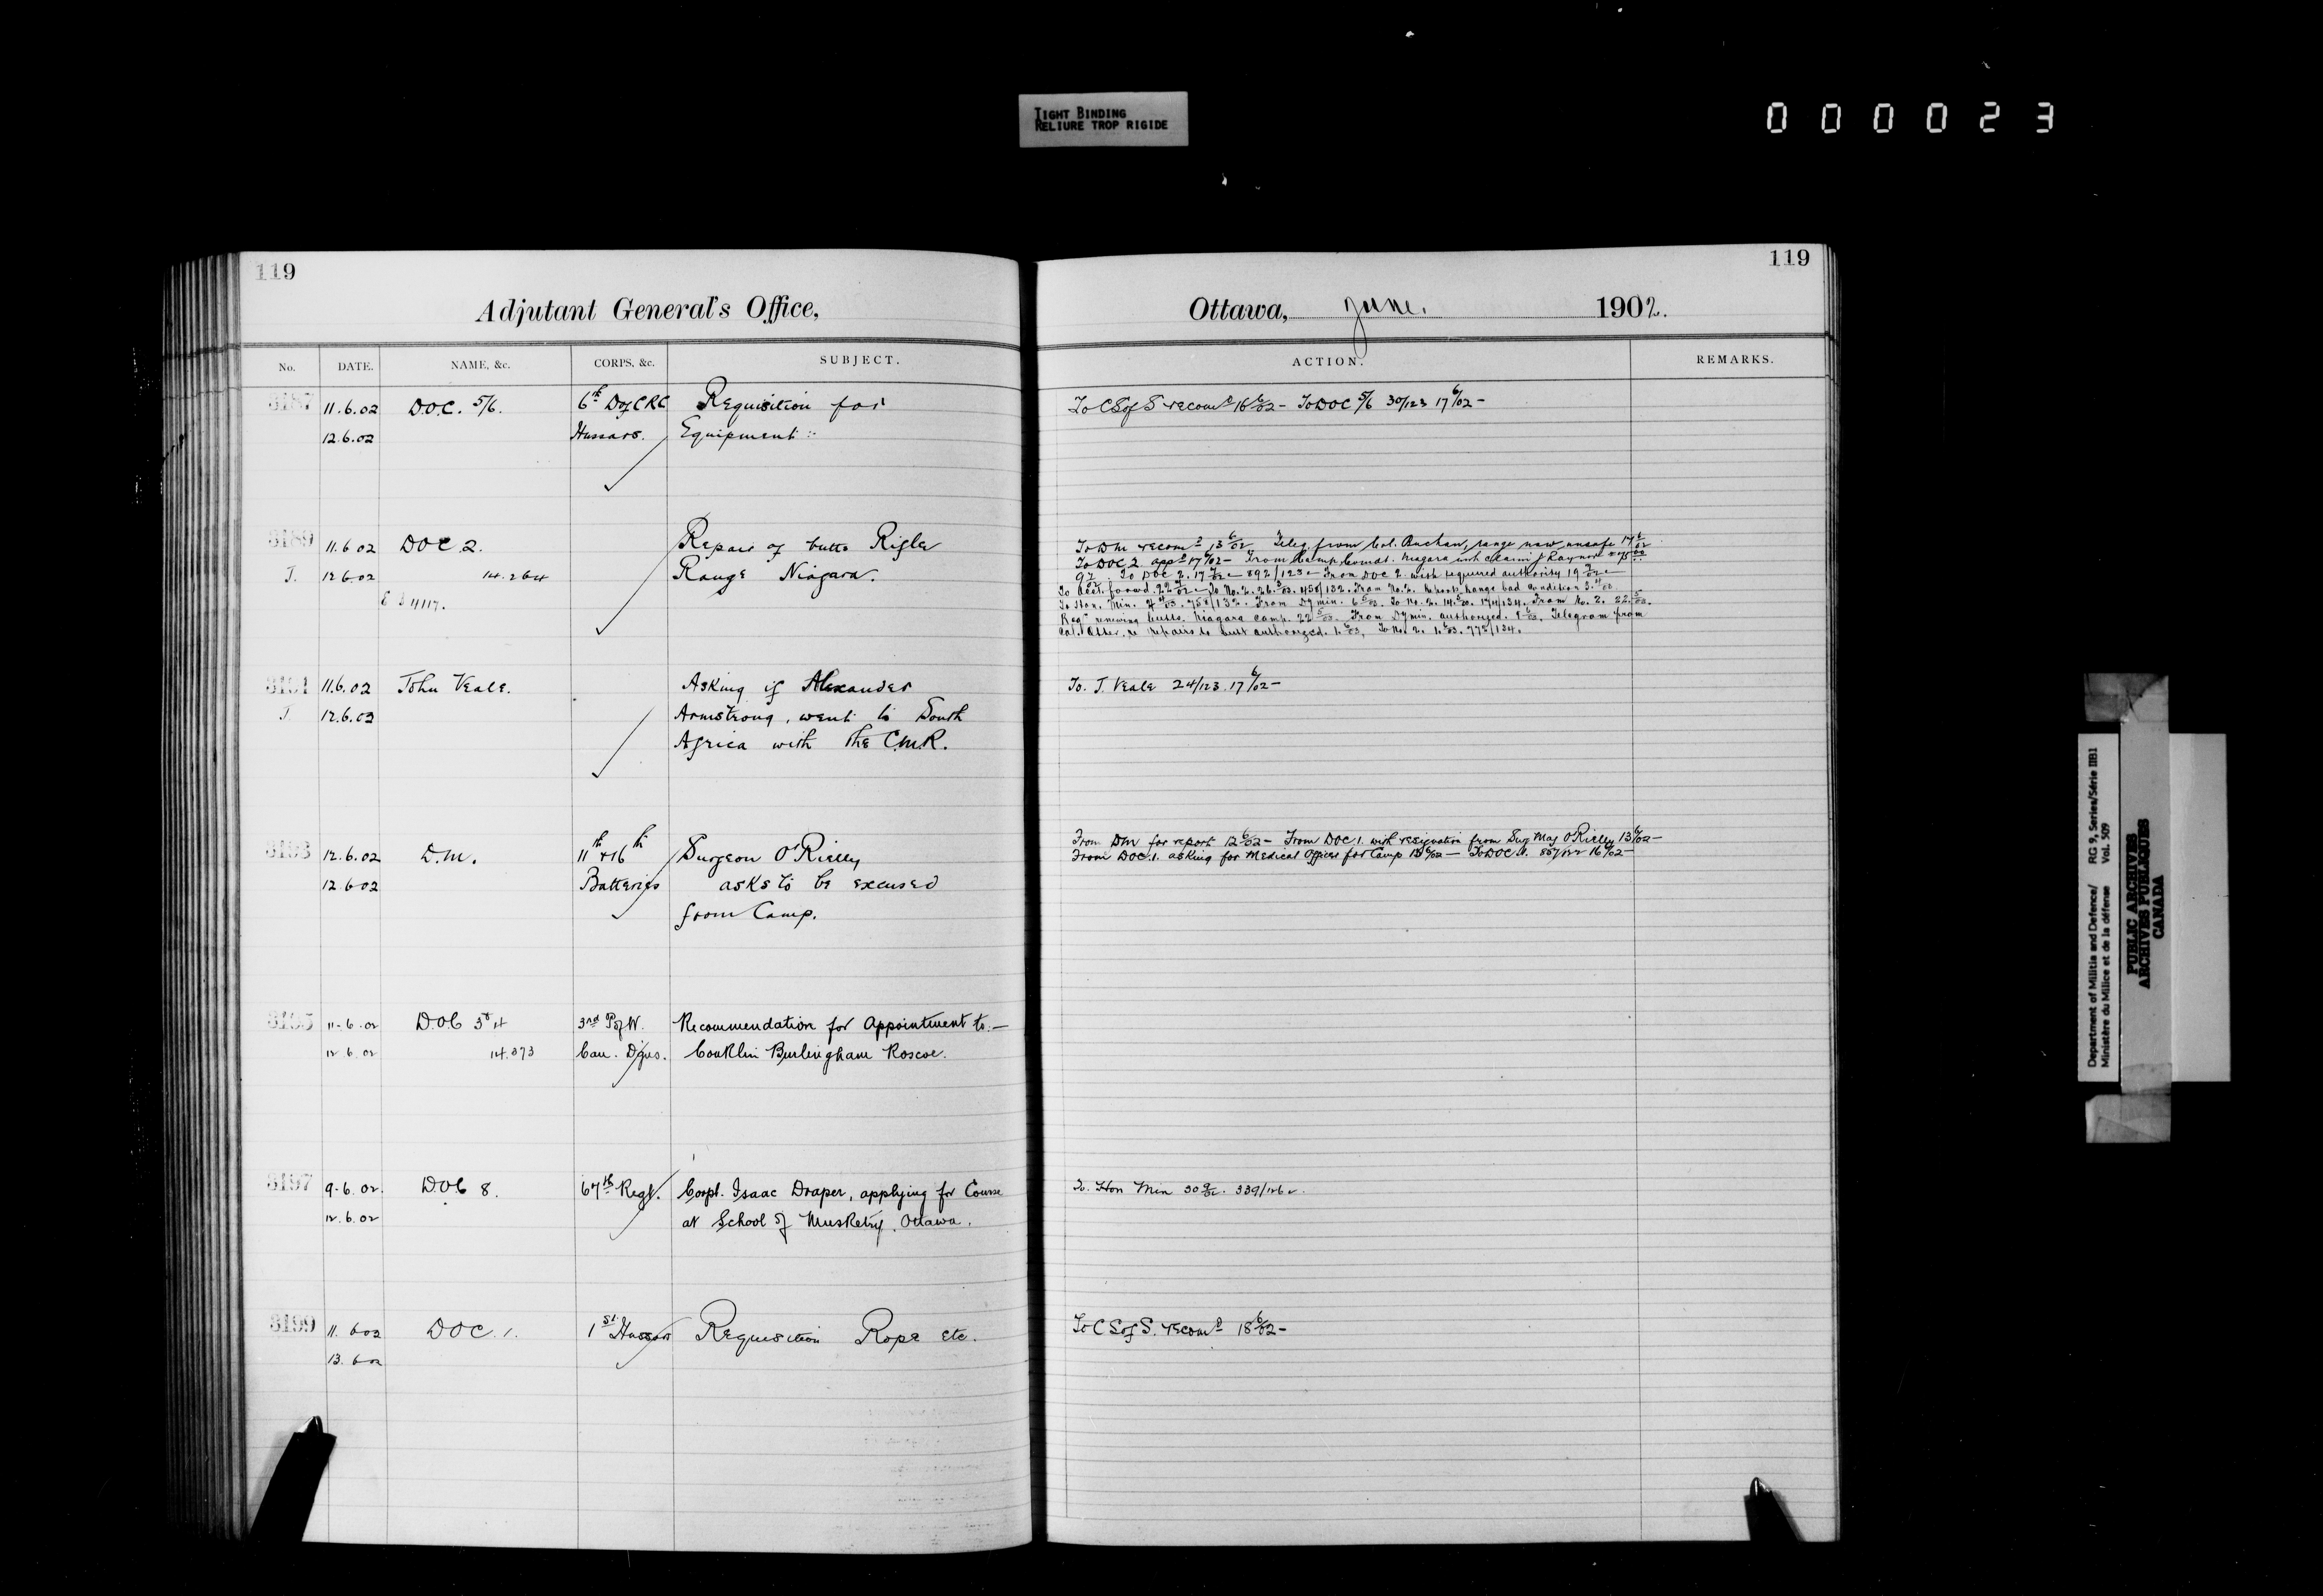 TIGHT BINDING
RELIURE TROP RIGIDE
000023
119
Adjutant General's Office,
No. DATE. NAME, &c. CORPS, &c. SUBJECT.
3187 11.6.02 D.O.C. 5/6. 6th D of C R C Requisition for
12.6.02 Hussars. Equipment
3189 11.6.02 DOC 2. Repair of butts Rifle
J. 12.6.02 14.264 Range Niagara.
4117.
3191 11.6.02 John Veale. Asking if Alexander
J. 12.6.02 Armstrong, went to South
Africa with the C.M.R.
3193 12.6.02 D.M. 11th & 16th Surgeon O'Rielly
12.6.02 Batteries asks to be excused
from Camp.
3195 11-6-02 D.O.C 3&4 3rd P of W. Recommendation for Appointment to:—
12.6.02 14.373 Can. D'gns. Conklin Burlingham Roscoe.
3197 9-6.02. D.O.C 8. 67th Regt. Corpl. Isaac Draper, applying for Course
12.6.02 at School of Musketry, Ottawa.
3199 11.6.02 DOC. 1. 1st Hussars Requisition Rope etc.
13.6.02
119
Ottawa, June. 1902.
ACTION. REMARKS.
To C S of S recomd 16/6/02 - To DOC 5/6 30/123 17/6/02 -
To DM recomd 13/6/02 Teleg. from Col. Buchan, range now unsafe 17/6/02
To DOC 2 appd 17/6/02 - From Camp Comdt. Niagara with claim J Raynor
To DOC 2. 17 892/125 From DOC 2. with required authority 19
forwd 22 To No. 2. 26. 458/132. From No. 2. Reports Range bad condition
To Hon. Min. 758/132. From Dy min. 6 To No. 2. 14. 134. From No. 2. 22.
renewing butts. Niagara camp. 22 From Dymin. authorized. Telegram from
Col. Otter, re repairs to butt authorized. 1. To No. 2. 1. 772/134.
To. J. Veale 24/123. 17/6/02 -
From DM for report 12/6/02 - From DOC.1. with resignation from Surg Maj O'Rielly 13/6/02 -
From DOC.1. asking for Medical Officer for Camp — To DOC 1. 16/6/02 -
To. Hon Min 30 339/126
To C S of S. recomd 18/6/02 -
Department of Militia and Defence/ RG 9, Series/Série IIB1
Ministère du Milice et de la défense Vol. 509
PUBLIC ARCHIVES
ARCHIVES PUBLIQUES
CANADA